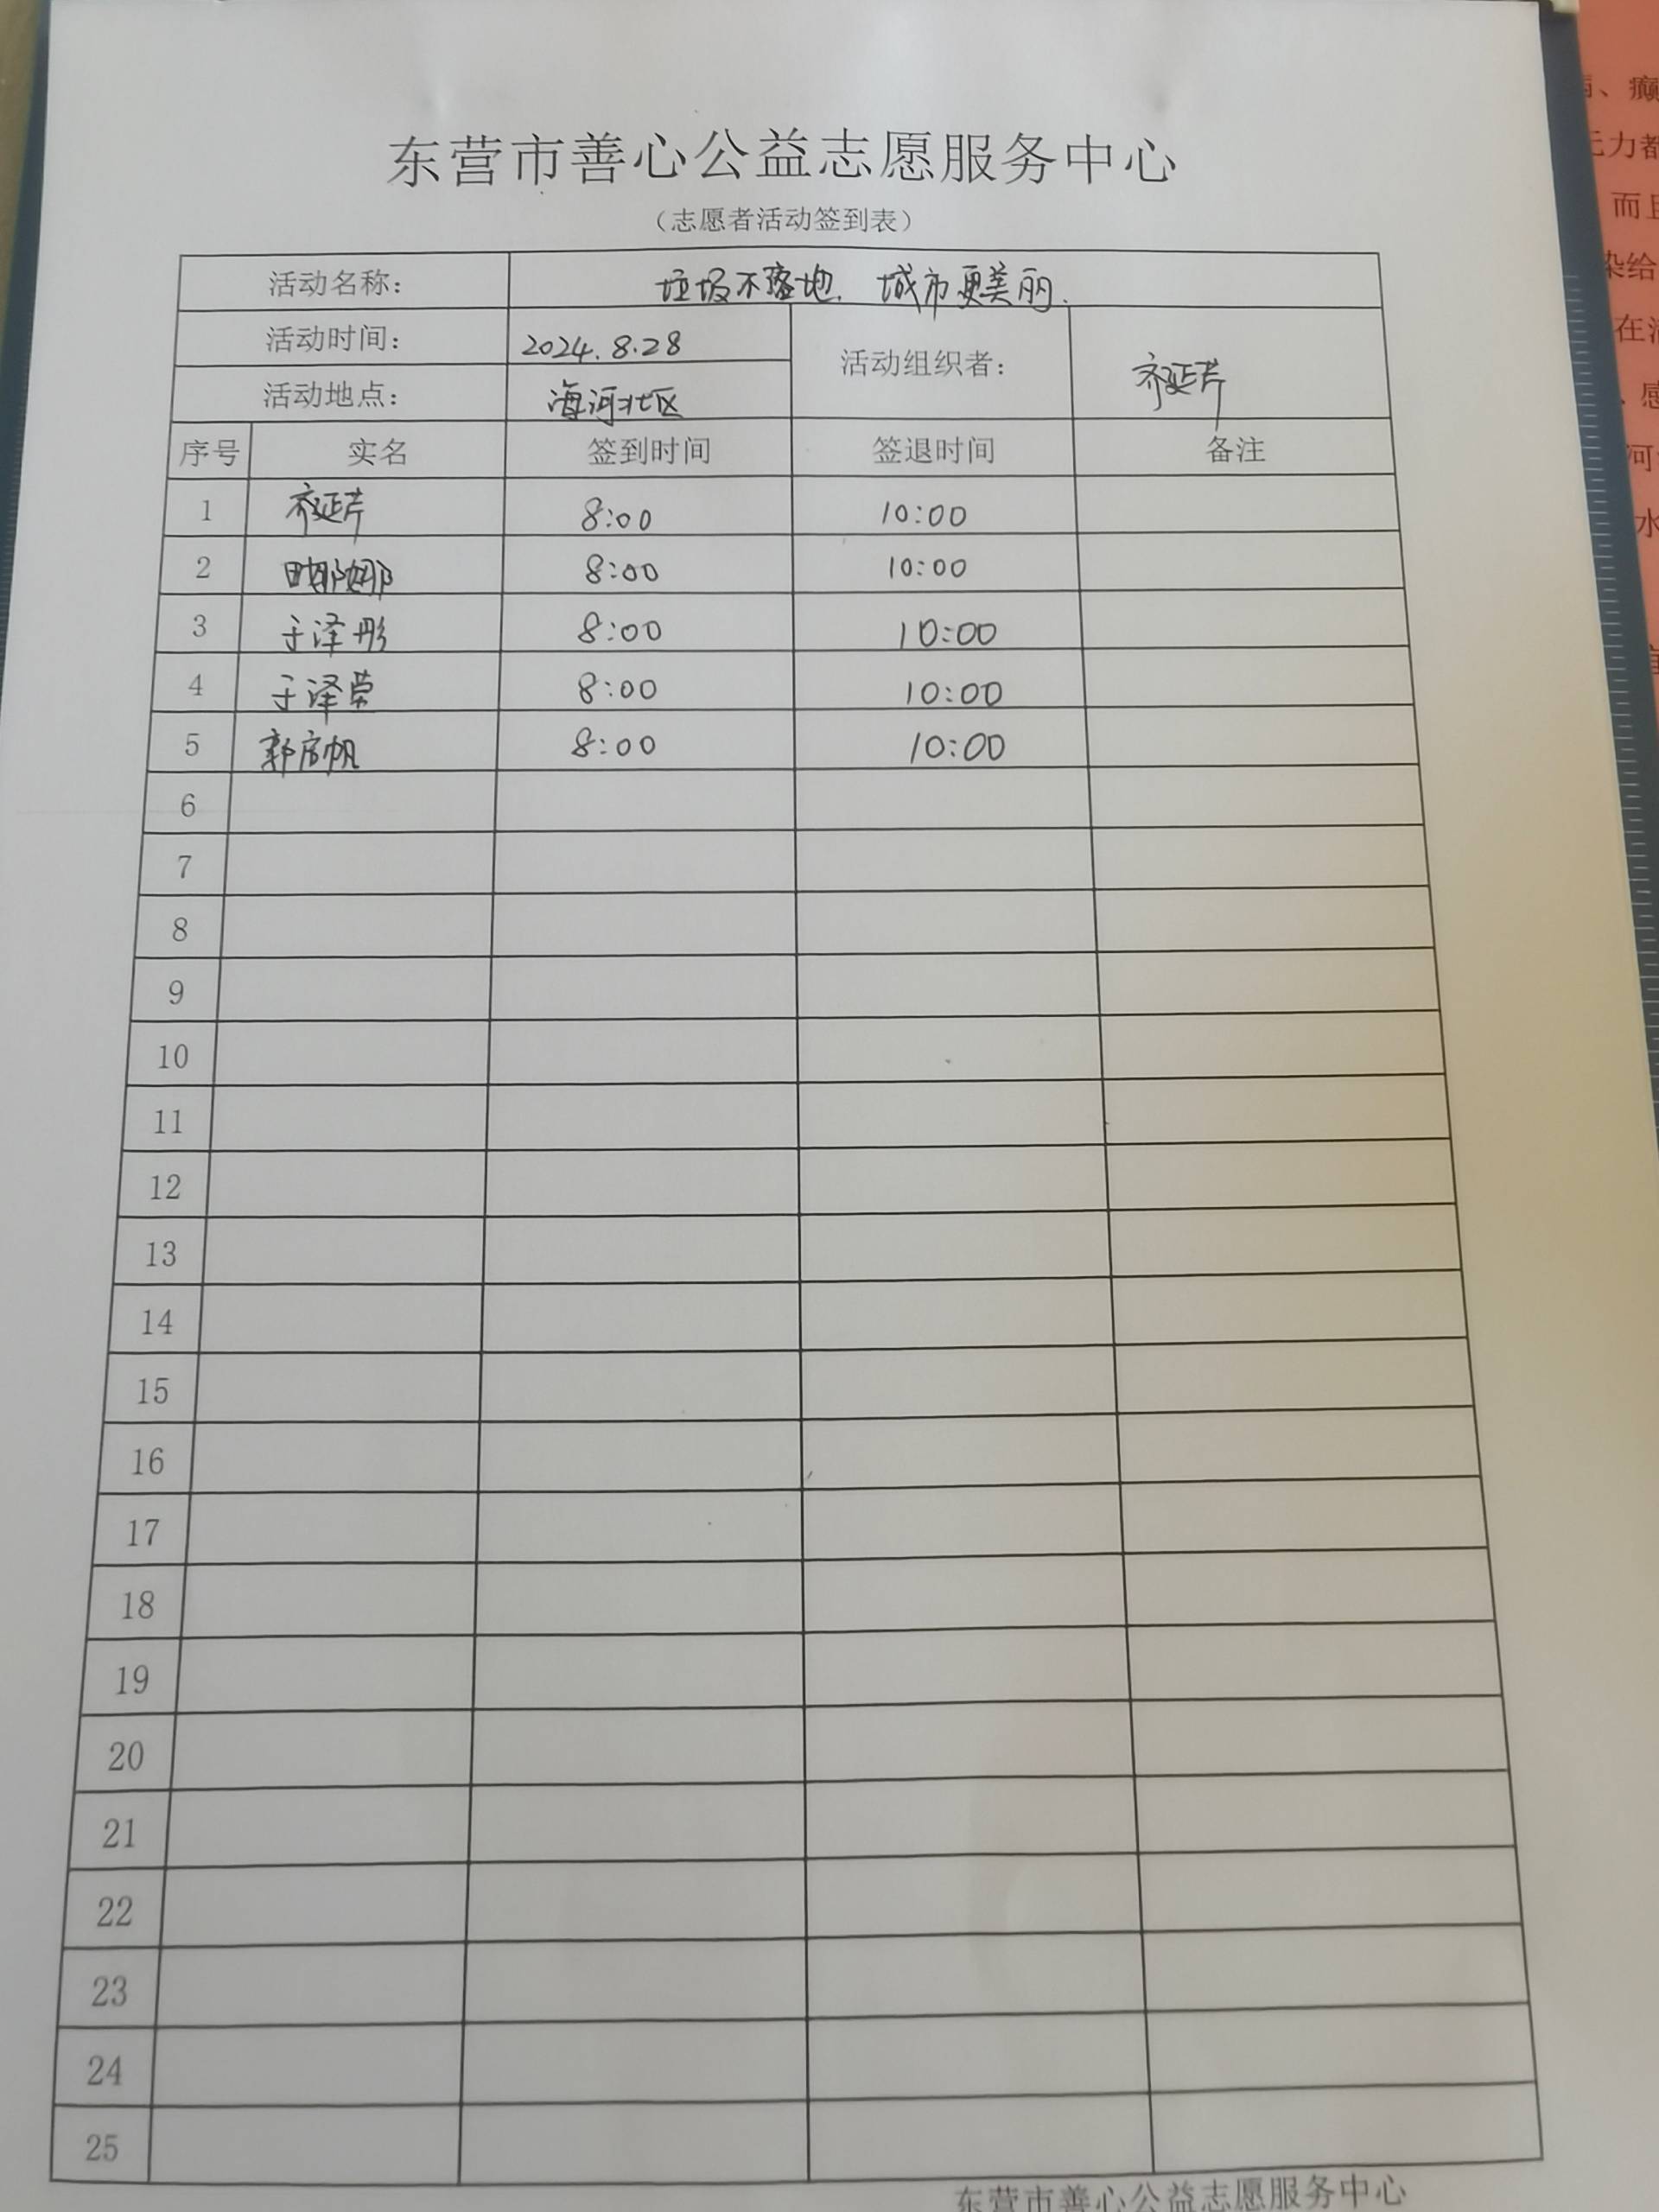 东营市善心公益志愿服务中心
（志愿者活动签到表）
活动名称： 垃圾不落地、城市更美丽.
活动时间： 2024.8.28 活动组织者： 齐延芹
活动地点： 海河北区
序号 实名 签到时间 签退时间 备注
1 齐延芹 8:00 10:00
2 田娜娜 8:00 10:00
3 于泽彤 8:00 10:00
4 于泽荣 8:00 10:00
5 郭启帆 8:00 10:00
6
7
8
9
10
11
12
13
14
15
16
17
18
19
20
21
22
23
24
25
东营市善心公益志愿服务中心
、癫
力都
而且
染给
在
、感
河
水